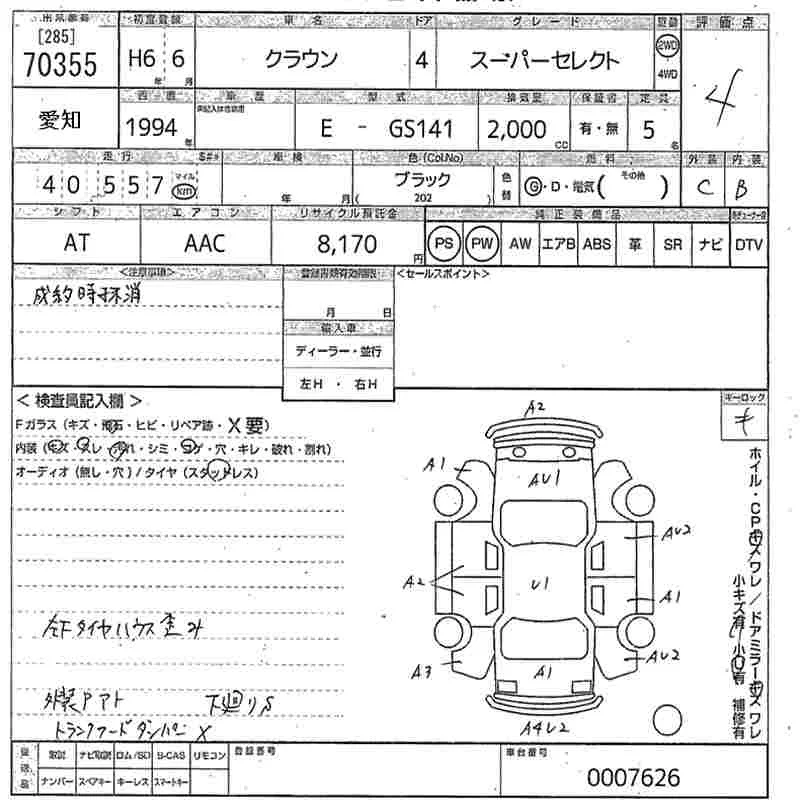 出品番号 初度登録 車名 ドア グレード 駆動 評価点
[285]
70355 H6年 6月 クラウン 4 スーパーセレクト 2WD 4WD 4
西暦 車歴 型式 排気量 保証書 定員
愛知 1994年 E - GS141 2,000CC 有・無 5名
走行 S#* 車検 色(Col.No) 燃料 外装 内装
40557 マイル km 年 月 ブラック (202) 色替 G・D・電気( その他 ) C B
シフト エアコン リサイクル預託金 純正装備品
AT AAC 8,170円 PS PW AW エアB ABS 革 SR ナビ DTV
<注意事項> 登録書類有効期限 <セールスポイント>
成約時抹消
月 日
輸入車
ディーラー・並行
左H ・ 右H
キーロック
キ
<検査員記入欄>
Fガラス(キズ・飛石・ヒビ・リペア跡・X要)
内装(キズ・スレ・汚れ・シミ・コゲ・穴・キレ・破れ・割れ)
オーディオ(無し・穴)/タイヤ(スタッドレス)
A2
A1
AU1
AU2
A2
U1
A1
A3
A1
AU2
A4U2
ホイル・CPキズワレ/ドアミラーキズワレ
小キズ有 小U有 補修有
左Fタイヤハウス歪み
外装Pアト 下廻りS
トランクフードダンパーX
後送品 取説 ナビ取説 ロム/SD B-CAS リモコン 登録番号 車台番号
ナンバー スペアキー キーレス スマートキー 0007626